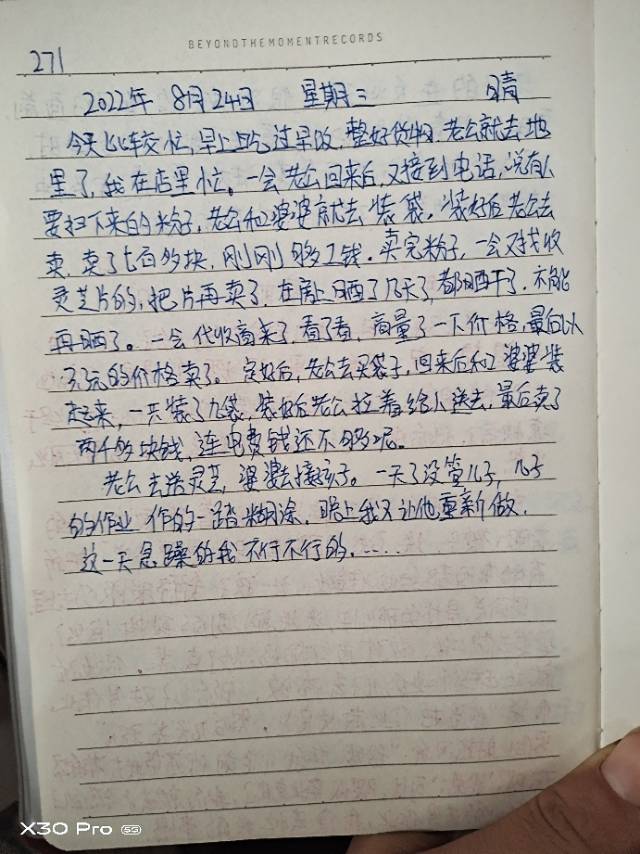 BEYONDTHEMOMENTRECORDS
271
2022年 8月24日 星期三 晴
今天比较忙,早上吃过早饭,整好货物,老公就去地
里了,我在店里忙。一会老公回来后,又接到电话,说有人
要扫下来的粉子,老公和婆婆就去装袋。装好后老公去
卖,卖了七百多块,刚刚够工钱。卖完粉子,一会又找收
灵芝片的,把片再卖了,在房上晒了几天了,都晒干了,不能
再晒了。一会代收商来了,看了看,商量了一下价格,最后以
元的价格卖了。定好后,老公去买袋子,回来后和婆婆装
起来,一共装了九袋,装好后老公拉着给人送去,最后卖了
两千多块钱,连电费钱还不够呢。
老公去送灵芝,婆婆去接孩子。一天了没管儿子,儿子
的作业作的一踏糊涂,晚上我又让他重新做,
这一天急躁的我不行不行的.....
X30 Pro 5G